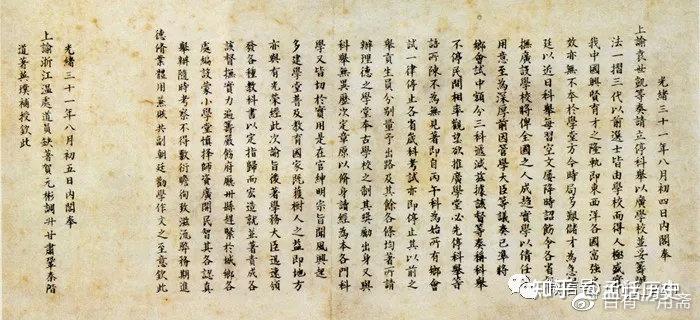 光緒三十一年八月初四日內閣奉
上諭袁世凱等奏請立停科舉以廣學校並妥籌
法一摺三代以前選士皆由學校而得人極盛
我中國興賢育才之隆軌即東西洋各國富強之
效亦無不本於學堂方今時局多艱儲才為
廷以近日科舉每習空文屢降明詔飭令各省
撫廣設學校將俾全國之人咸趨實學以備任
用意至為深厚前因管學大臣等議奏已準將
鄉會試中額分三科遞減茲據該督等奏稱科舉
不停民間相率觀望欲推廣學堂必先停科舉等
語所陳不為無見著即自丙午科為始所有鄉會
試一律停止各省歲科考試亦即停止其以前之
舉貢生員分別量予出路及其餘各條均著照所請
辦理總之學堂本古學校之制其獎勵出身又與
科舉無異歷次定章原以修身讀經為本各門科
學又皆切於實用是在官紳申明宗旨聞風興起
多建學堂普及教育國家既獲樹人之益即地方
亦有光榮經此次諭旨後著學務大臣迅速頒
發各種教科書以定指歸而宏造就並著責成各
該督撫實力通籌嚴飭府廳州縣趕緊於城鄉各
處徧設蒙小學堂慎擇師資廣開民智其各認真
舉辦隨時考察不得敷衍瞻徇致滋流弊務期進
德修業體用兼賅共副朝廷勸學作文之至意欽此
光緒三十一年八月初五日內閣奉
上諭浙江溫處道員缺著賀元彬調補甘肅鞏秦階
道著英璞補授欽此